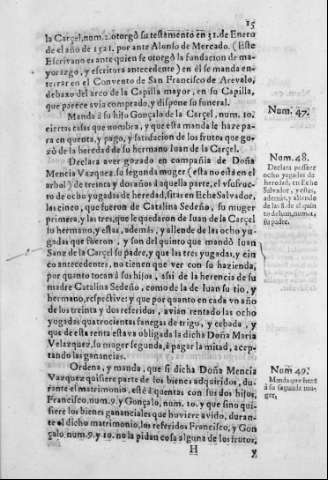 15
la Carçel, num. 2. otorgò su testamento en 31. de Enero
de el año de 1521. por ante Alonso de Mercado. (Este
Escrivano es ante quien se otorgò la fundacion de ma-
yorazgo, y escritura antecedente) en èl se manda en-
terrar en el Convento de San Francisco de Arevalo,
debaxo del arco de la Capilla mayor, en su Capilla,
que parece avia comprado, y dispone su funeral.
Manda à su hijo Gonçalo de la Carçel, num. 10.
ciertas casas que nombra, y que esta manda le haze pa-
ra en quenta, y pago, y satisfacion de los frutos que go-
zò de la heredad de su hermano Iuan de la Carçel.
Num. 47.
Declara aver gozado en compañia de Doña
Mencia Vazquez, su segunda muger (esta no està en el
arbol) de treinta y dos años à aquella parte, el vsufruc-
to de ocho yugadas de heredad, sitas en Eche Salvador,
las cinco, que fueron de Catalina Sedeño, su muger
primera, y las tres, que le quedaron de Iuan de la Carçel
su hermano, y estas, además, y allende de las ocho yu-
gadas que fueron, y son del quinto que mandò Iuan
Sanz de la Carçel su padre, y que las tres yugadas, y cin-
co antecedentes, no tienen que ver con su hazienda,
por quanto tocan à sus hijos, assi de la herencia de su
madre Catalina Sedeño, como de la de Iuan su tio, y
hermano, respective: y que por quanto en cada vn año
de los treinta y dos referidos, avian rentado las ocho
yugadas quatrocientas fanegas de trigo, y cebada, y
que de esta renta estava obligada la dicha Doña Maria
Velazquez, su muger segunda, à pagar la mitad, acep-
tando las ganancias.
Num. 48.
Declara posseer
ocho yugadas de
heredad, en Eche
Salvador, y estas,
además, y allende
de las 8. de el quin
to de Iuan, num. 1.
su padre.
Ordena, y manda, que si dicha Doña Mencia
Vazquez quisiere parte de los bienes adquiridos, du-
rante el matrimonio, estè à quentas con sus dos hijos,
Francisco, num. 9. y Gonçalo, num. 10. y que si no qui-
siere los bienes gananciales que huviere avido, duran-
te el dicho matrimonio, los referidos Francisco, y Gon
çalo num. 9. y 10. no la pidan cosa alguna de los frutos,
Num. 49.
Manda que hizo
à su segunda mu-
ger,
H
y